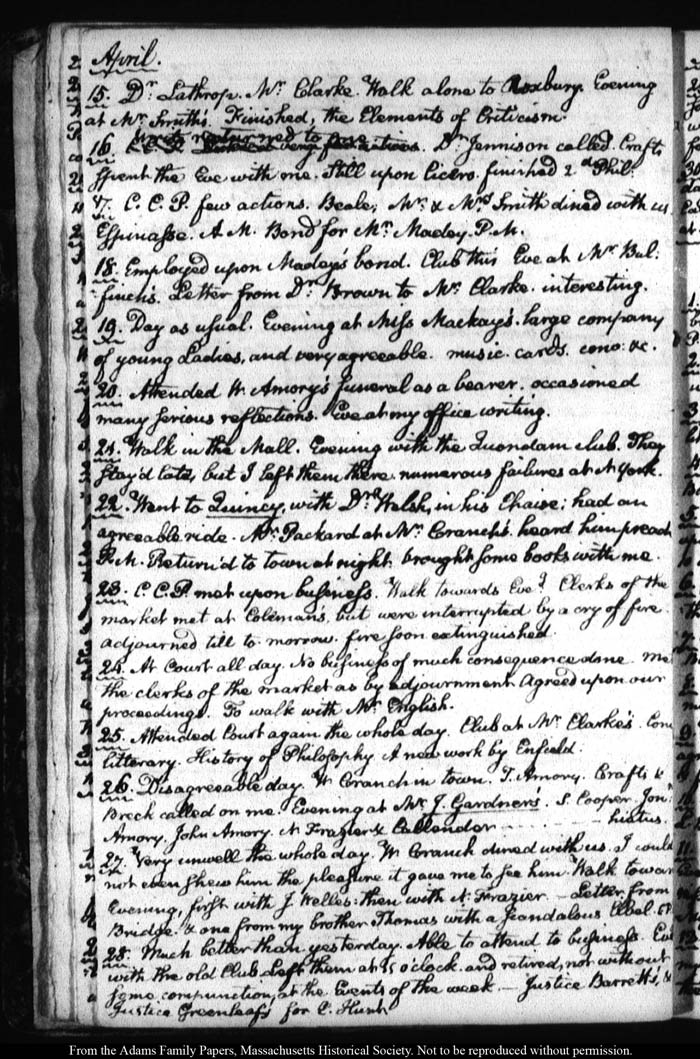 April.
15. Dr. Lathrop. Mr. Clarke. Walk alone to Roxbury. Evening
at Mr. Smith's. Finished, the Elements of Criticism.
16. Dr. Jennison called. Crafts
spent the Eve with me. Still upon Cicero. finished 2d Phil:
17. C. C. P. few actions. Beale, Mr. & Mrs. Smith dined with us
Espinasse. A.M. Bond for Mr. Macley. P.M.
18. Employed upon Macley's bond. Club this Eve at Mr. Bul:
finch's. Letter from Dr. Brown to Mr. Clarke. interesting.
19. Day as usual. Evening at Miss Mackay's. large company
of young Ladies, and very agreeable. music. cards. &c.
20. Attended W. Amory's funeral as a bearer. occasioned
many serious reflections. Eve at my office writing.
21. Walk in the Mall. Evening with the Quondam club. They
stay'd late, but I left them there. numerous failures at N. York.
22. Went to Quincy, with Dr. Welsh, in his Chaise: had an
agreeable ride. Mr. Packard at Mr. Cranch's. heard him preach
P.M. Return'd to town at night. brought some books with me.
23. C. C. P. met upon business. Walk towards Eveg. Clerks of the
market met at Coleman's, but were interrupted by a cry of fire.
adjourned till to-morrow. fire soon extinguished.
24. At Court all day. No business of much consequence done. Met
the clerks of the market as by adjournment. Agreed upon our
proceedings. To walk with Mr. English.
25. Attended Court again the whole day. Club at Mr. Clarke's.
litterary. History of Philosophy. A new work by Enfield.
26. Disagreeable day. W. Cranch in town. T. Amory. Crafts &
Breck called on me. Evening at Mr. J. Gardner's. S. Cooper. Jon:
Amory. John Amory. N Frazier & Callender - - - - hiatus.
27. Very unwell the whole day. W. Cranch dined with us. I could
not even shew him the pleasure it gave me to see him. Walk towar
Evening, first with J. Welles: then with N. Frazier - Letter from
Bridge. & one from my brother Thomas with a scandalous libel.
28. Much better than yesterday. Able to attend to business. Eve
with the old Club. Left them at o'clock. and retired, not without
some compunction, at the Events of the week. - Justice Barrett's, &
Justice Greenleaf's for C. Hunt
From the Adams Family Papers, Massachusetts Historical Society. Not to be reproduced without permission.